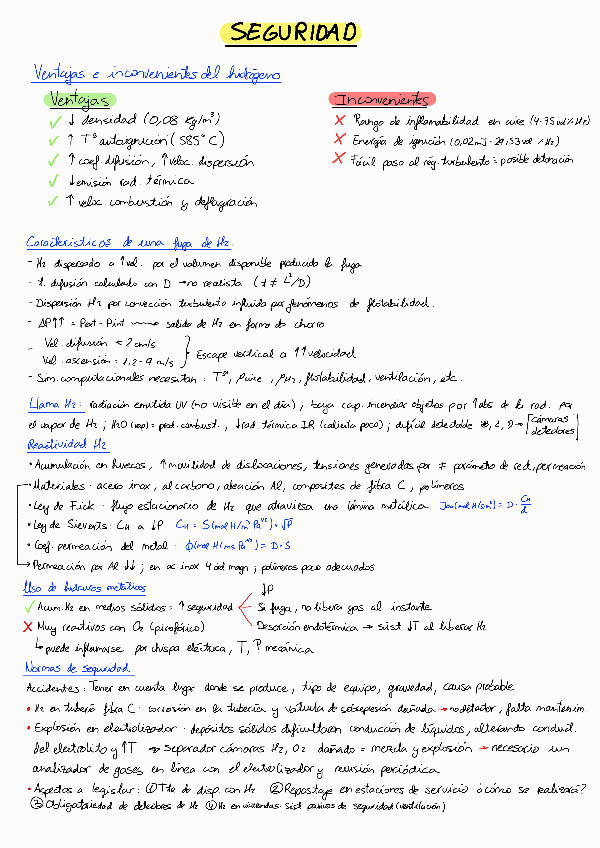 SEGURIDAD
Ventajas e inconvenientes del hidrógeno
Ventajas
✓ ↓ densidad (0,08 kg/m³)
✓ ↑ Tª autoignición (585°C)
✓ ↑ coef. difusión, ↑ veloc. dispersión
✓ ↓ emisión rad. térmica
✓ ↑ veloc. combustión y deflagración
Inconvenientes
✗ Rango de inflamabilidad en aire (4-75 vol% H₂)
✗ Energía de ignición (0,02 mJ - 29,53 vol% H₂)
✗ Fácil paso al rég. turbulento = posible detonación
Características de una fuga de H₂.
- H₂ dispersado a ↑ vol. por el volumen disponible producido la fuga
- t. difusión calculado con D → no realista (t ≠ L²/D)
- Dispersión H₂ por convección turbulenta influida por fenómenos de flotabilidad.
- ΔP↑↑ = Pext - Pint → salida de H₂ en forma de chorro
- Vel. difusión < 2 cm/s
Vel. ascensión = 1,2 - 9 m/s } Escape vertical a ↑↑ velocidad
- Sim. computacionales necesitan: Tª, ρaire, ρH₂, flotabilidad, ventilación, etc.
Llama H₂: radiación emitida UV (no visible en el día); baja cap. incendiar objetos por ↑ abs de la rad. por
el vapor de H₂; H₂O (vap) = prod. combust., ↓ rad térmica IR (calienta poco); difícil detectable → [cámaras detectores]
Reactividad H₂
• Acumulación en huecos, ↑ movilidad de dislocaciones, tensiones generadas por ≠ parámetro de red, permeación
• Materiales: acero inox, al carbono, aleación Al, composites de fibra C, polímeros
• Ley de Fick: flujo estacionario de H₂ que atraviesa una lámina metálica J (mol H/s m²) = D · C_H/d
• Ley de Sieverts: C_H a ↓P C_H = S (mol H/m³ Pa^1/2) · √P
• Coef. permeación del metal: ϕ (mol H/ms Pa^1/2) = D · S
→ Permeación por Al ↓↓; en ac. inox 4 ód magn; polímeros poco adecuados
Uso de hidruros metálicos
✓ Acum. H₂ en medios sólidos = ↑ seguridad
↓P
Si fuga, no libera gas al instante
Desorción endotérmica → sist ↓T al liberar H₂
✗ Muy reactivos con O₂ (pirofórico)
↳ puede inflamarse por chispa eléctrica, T, P mecánica
Normas de seguridad
Accidentes: Tener en cuenta lugar donde se produce, tipo de equipo, gravedad, causa probable
• H₂ en tubería fibra C: corrosión en la tubería y válvula de sobrepresión dañada → no detector, falta mantenim.
• Explosión en electrolizador: depósitos sólidos dificultaron conducción de líquidos, alterando conduct.
del electrolito y ↑T → separador cámaras H₂, O₂ dañado = mezcla y explosión → necesario un
analizador de gases en línea con el electrolizador y revisión periódica
• Aspectos a legislar: ① Tte de disp. con H₂ ② Repostaje en estaciones de servicio ¿cómo se realizará?
③ Obligatoriedad de detectores de H₂ ④ H₂ en viviendas: sist pasivos de seguridad (ventilación)